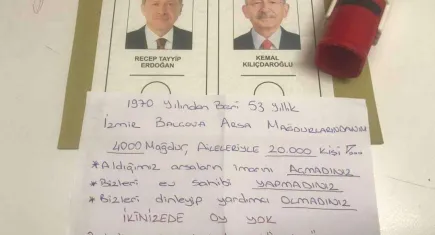 RECEP TAYYİP
ERDOĞAN
KEMAL
KILIÇDAROĞLU
1970 yılından Beri 53 yıllık
İZMİR BALÇOVA ARSA MAĞDURLARINDANIM
4000 Mağdur, AİLELERİYLE 20.000 Kişi
*Aldığımız arsaların imarını AÇMADINIZ
*Bizleri ev sahibi YAPMADINIZ
*Bizleri dinleyip yardımcı OLMADINIZ
İKİNİZEDE OY YOK